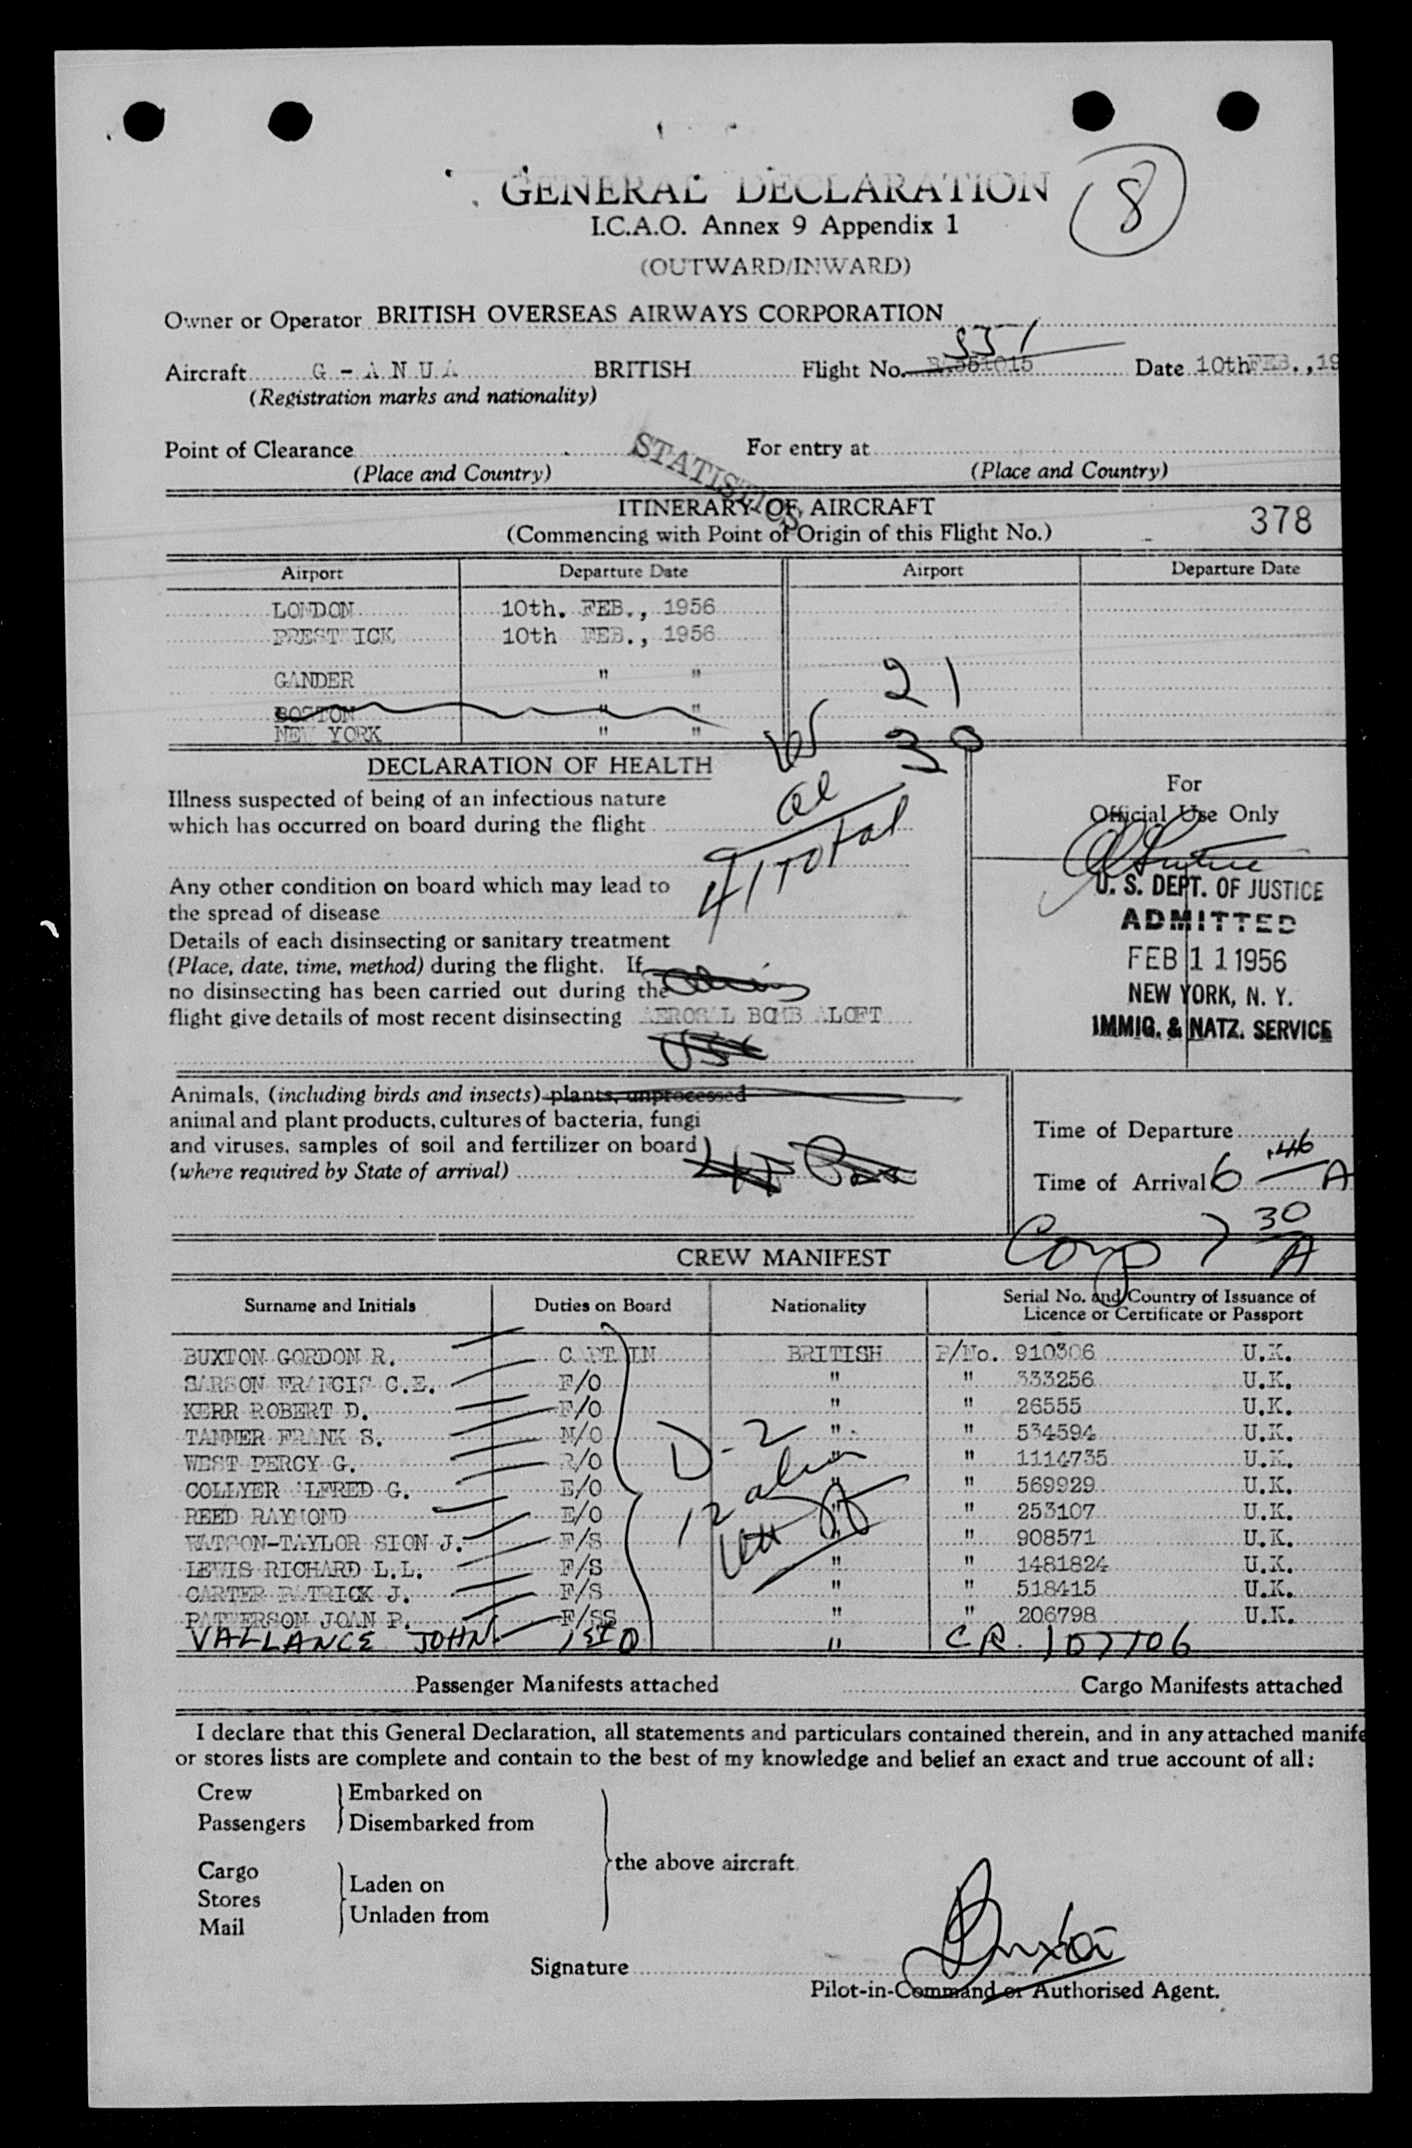 8
GENERAL DECLARATION
I.C.A.O. Annex 9 Appendix 1
(OUTWARD/INWARD)
Owner or Operator BRITISH OVERSEAS AIRWAYS CORPORATION
551
Aircraft G - A N U A BRITISH Flight No. Date 10th FEB., 19
(Registration marks and nationality)
Point of Clearance For entry at
(Place and Country) (Place and Country)
STATISTICS
ITINERARY OF AIRCRAFT
(Commencing with Point of Origin of this Flight No.) 378
Airport Departure Date Airport Departure Date
LONDON 10th. FEB., 1956
PRESTWICK 10th FEB., 1956
GANDER " " 21
BOSTON " "
NEW YORK " " 30
DECLARATION OF HEALTH
For
Official Use Only
Illness suspected of being of an infectious nature
which has occurred on board during the flight
41 Total
Any other condition on board which may lead to
the spread of disease
U. S. DEPT. OF JUSTICE
ADMITTED
FEB 11 1956
NEW YORK, N. Y.
IMMIG. & NATZ. SERVICE
Details of each disinsecting or sanitary treatment
(Place, date, time, method) during the flight. If
no disinsecting has been carried out during the
flight give details of most recent disinsecting AEROSAL BOMB ALOFT
Animals, (including birds and insects) plants, unprocessed
animal and plant products, cultures of bacteria, fungi
and viruses, samples of soil and fertilizer on board
(where required by State of arrival)
Time of Departure
Time of Arrival 6 46 A
Comp 7 30 A
CREW MANIFEST
Surname and Initials Duties on Board Nationality Serial No. and Country of Issuance of
Licence or Certificate or Passport
BUXTON GORDON R. CAPTAIN BRITISH P/No. 910306 U.K.
SARSON FRANCIS C.E. F/O " " 333256 U.K.
KERR ROBERT D. F/O " " 26555 U.K.
TANNER FRANK S. N/O " " 534594 U.K.
WEST PERCY G. R/O " " 1114735 U.K.
COLLYER ALFRED G. E/O " " 569929 U.K.
REED RAYMOND E/O " " 253107 U.K.
WATSON-TAYLOR SION J. F/S " " 908571 U.K.
LEWIS RICHARD L.L. F/S " " 1481824 U.K.
CARTER PATRICK J. F/S " " 518415 U.K.
PATTERSON JOAN P. F/SS " " 206798 U.K.
VALLANCE JOHN 1st O " C.R. 107706
D-2
12 alien
Passenger Manifests attached Cargo Manifests attached
I declare that this General Declaration, all statements and particulars contained therein, and in any attached manife
or stores lists are complete and contain to the best of my knowledge and belief an exact and true account of all:
Crew Embarked on
Passengers Disembarked from
the above aircraft.
Cargo
Stores Laden on
Mail Unladen from
Signature Buxton
Pilot-in-Command or Authorised Agent.